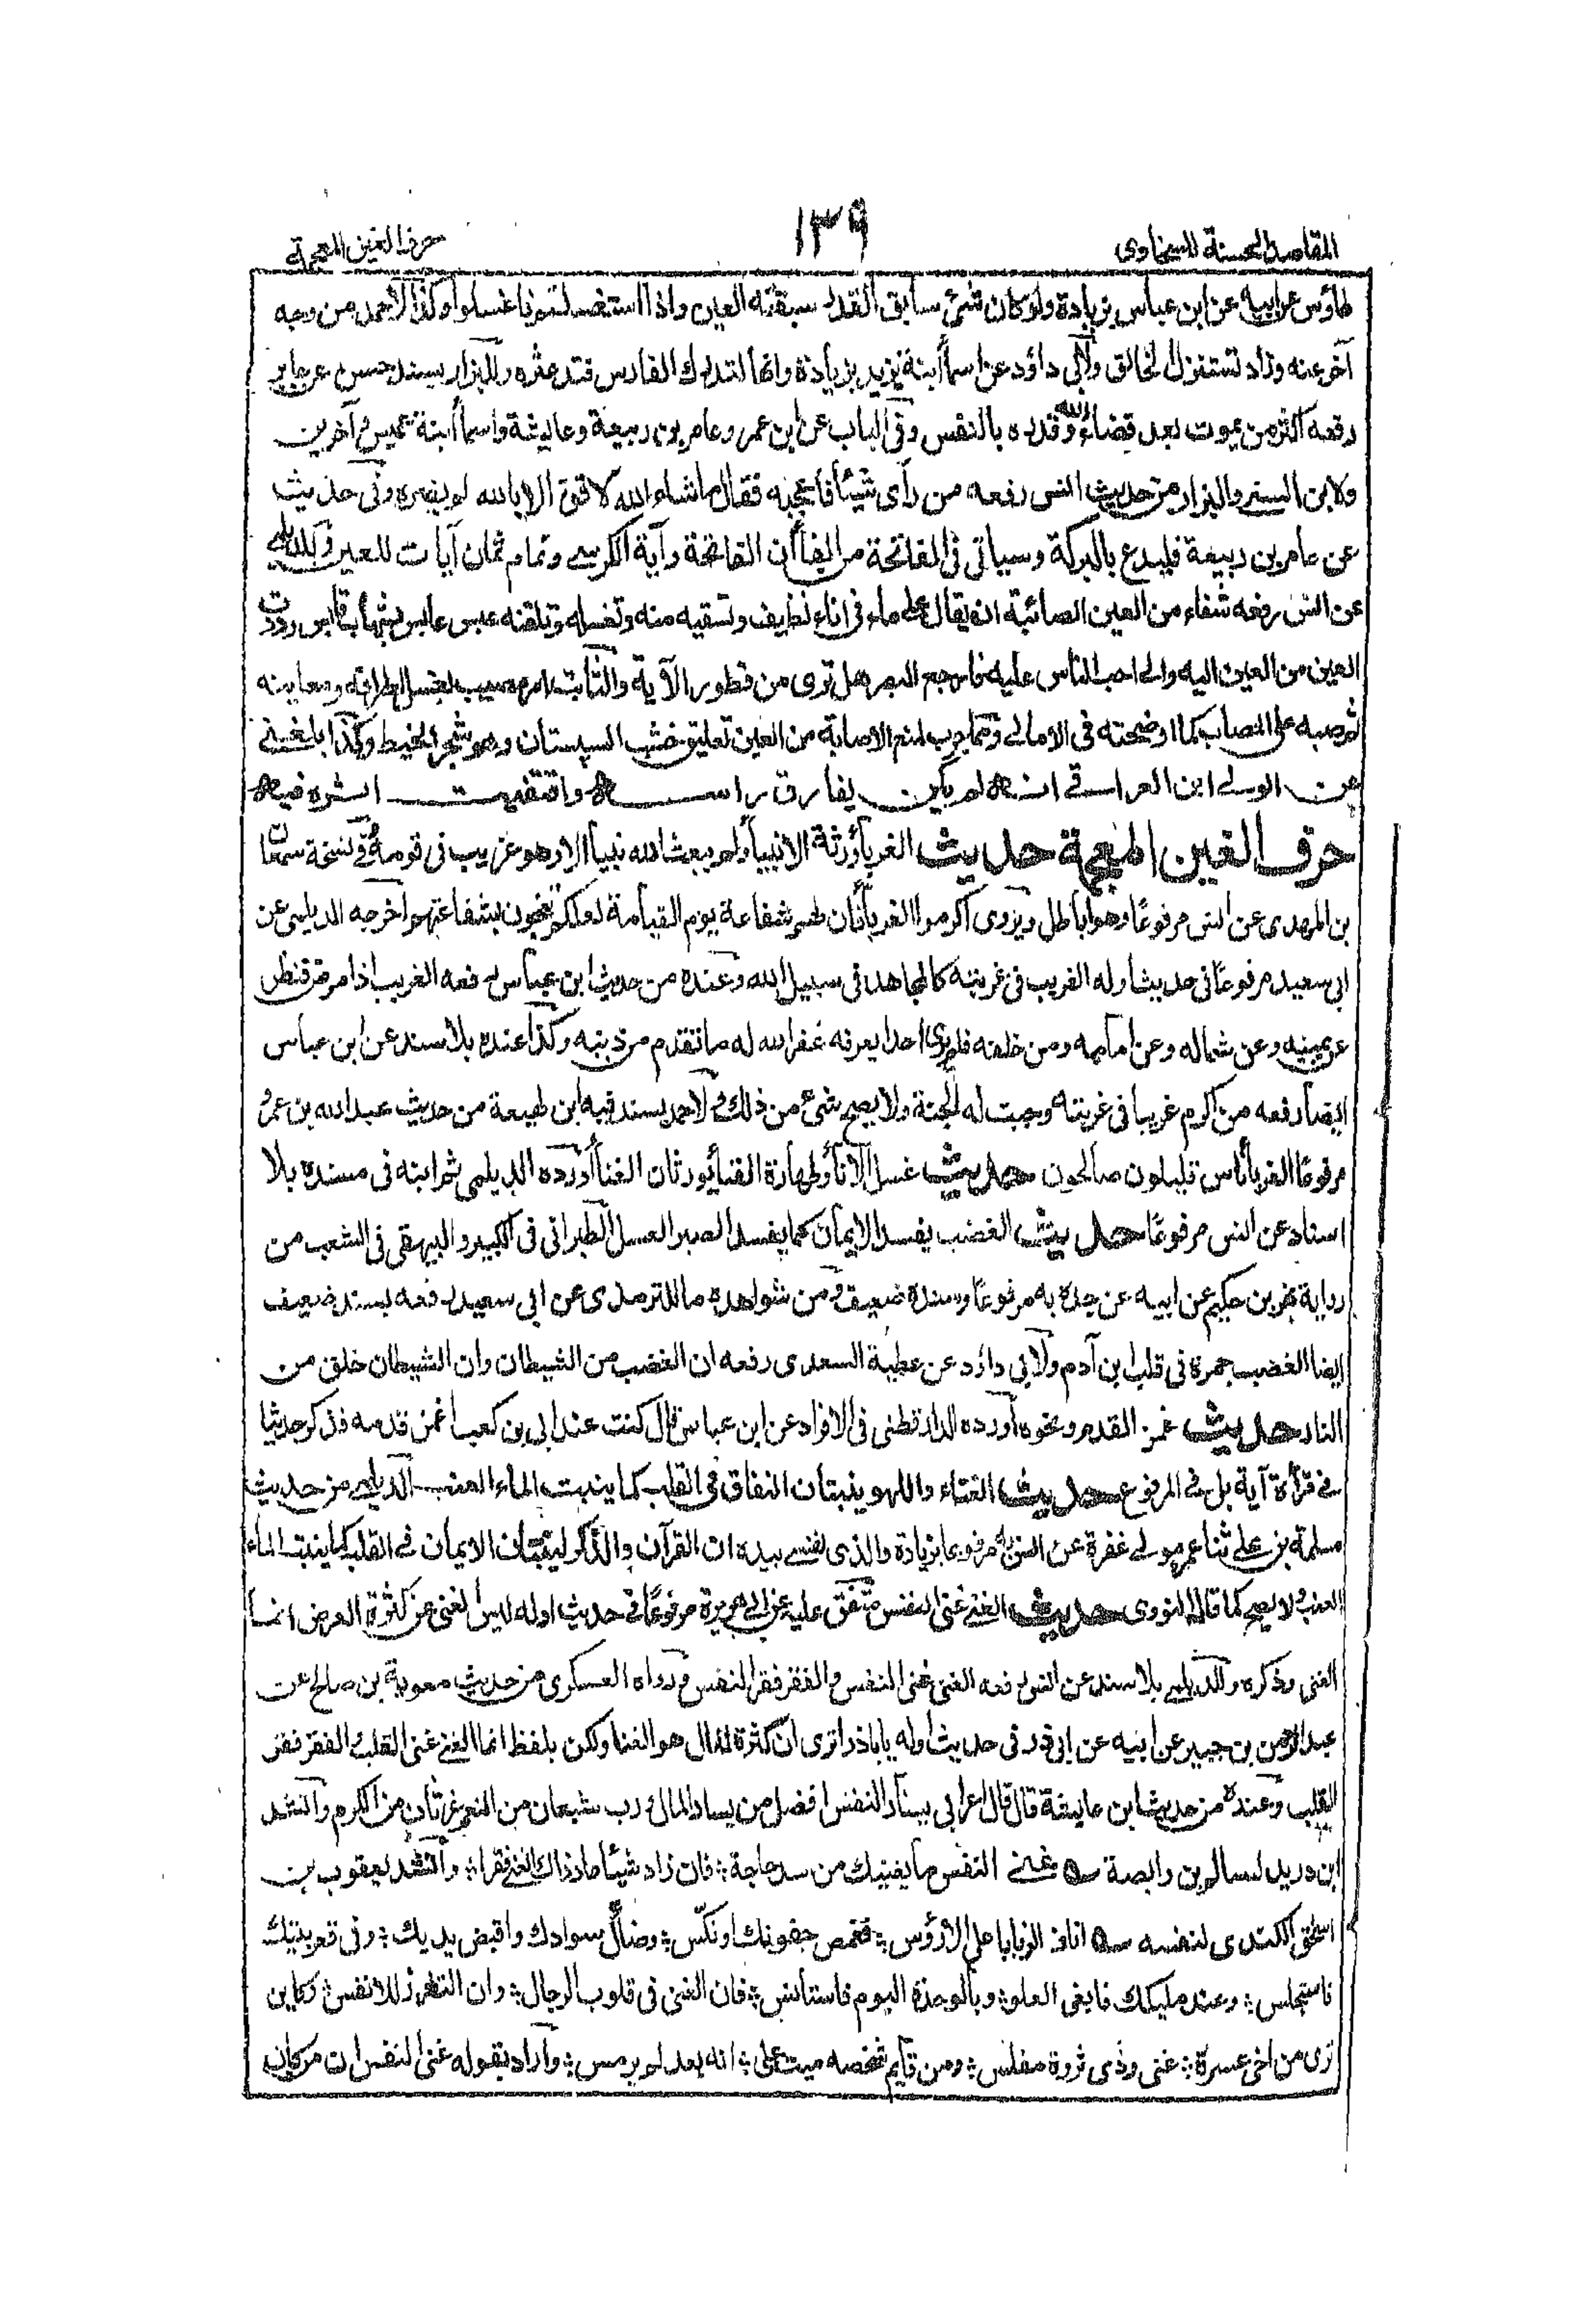 المقاصد الحسنة للسخاوى
١٣٩
حرف الغين المعجمة
طاؤس عن ابيه عن ابن عباس بزيادة ولو كان شئ سابق القدر سبقته العين واذا استغسلتم فاغسلوا وكذا لاحمد من وجه
آخر عنه وزاد تستنزل الحالق ولابى داؤد عن اسماء ابنة يزيد بزيادة وانها لتدرك الفارس فتدعثره وللبزار بسند حسن عن جابر
رفعه اكثر من يموت بعد قضاء الله وقدره بالنفس وفى الباب عن ابن عمر وعامر بن ربيعة وعائشة واسماء ابنة عميس وآخرين
ولابن السنى والبزار من حديث انس رفعه من رأى شيئا فاعجبه فقال ما شاء الله لا قوة الا بالله لم يضره وفى حديث
عن عامر بن ربيعة فليدع بالبركة وسياتى فى الفاتحة من الفاء ان الفاتحة وآية الكرسى وتمام ثمان آيات للعين وللديلمى
عن انس رفعه شفاء من العين الصائبة ان يقال على ماء فى اناء نظيف وتسقيه منه وتغسله وتلقنه عبس عابس بشهاب قابس رددت
العين من العين اليه والى احب الناس عليه فارجع البصر هل ترى من فطور الآية والثابت امره بغسل اطرافه ومغابنه
ثم صبه على المصاب كما اوضحته فى الامالى ومما جرب لمنع الاصابة من العين تعليق خشب السپستان وهو شجر المخيط وكذا بلغنى
عن الولى ابن العراقى انه لم يكن يفارق راسه واقتفيت اثره فيه
حرف الغين المعجمة حديث الغرباء ورثة الانبياء ولم يبعث الله نبيا الا وهو غريب فى قومه فى نسخة سمعان
بن المهدى عن انس مرفوعا وهو باطل ويروى اكرموا الغرباء فان لهم شفاعة يوم القيامة لعلكم تنجون بشفاعتهم اخرجه الديلمى عن
ابى سعيد مرفوعا فى حديث اوله الغريب فى غربته كالمجاهد فى سبيل الله وعنده من حديث ابن عباس رفعه الغريب اذا مرض فنظر
عن يمينه وعن شماله وعن امامه ومن خلفه فلم ير احدا يعرفه غفر الله له ما تقدم من ذنبه وكذا عنده بلا سند عن ابن عباس
ايضا رفعه من اكرم غريبا فى غربته وجبت له الجنة ولا يصح شئ من ذلك ولاحمد بسند فيه ابن لهيعة من حديث عبد الله بن عمرو
مرفوعا الغرباء ناس قليلون صالحون حديث غسل الاناء وطهارة الفناء يورثان الغناء أورده الديلمى ثم ابنه فى مسنده بلا
اسناد عن انس مرفوعا حديث الغضب يفسد الايمان كما يفسد الصبر العسل الطبرانى فى الكبير والبيهقى فى الشعب من
رواية بهز بن حكيم عن ابيه عن جده به مرفوعا وسنده ضعيف ومن شواهده ما للترمذى عن ابى سعيد رفعه بسند ضعيف
ايضا الغضب جمرة فى قلب ابن آدم ولابى داؤد عن عطية السعدى رفعه ان الغضب من الشيطان وان الشيطان خلق من
النار حديث غمز القدم ونحوه أورده الدارقطنى فى الافراد عن ابن عباس قال كنت عند ابى بن كعب اغمز قدمه فذكر حديثا
فى قرأة آية بل فى المرفوع حديث الغناء واللهو ينبتان النفاق فى القلب كما ينبت الماء العشب الديلمى من حديث
مسلمة بن على ثنا عمر مولى غفرة عن انس به مرفوعا بزيادة والذى نفسى بيده ان القرآن والذكر لينبتان الايمان فى القلب كما ينبت الماء
العشب ولا يصح كما قاله النووى حديث الغنى غنى النفس متفق عليه عن ابى هريرة مرفوعا فى حديث اوله ليس الغنى عن كثرة العرض انما
الغنى وذكره وللديلمى بلا سند عن انس رفعه الغنى غنى النفس والفقر فقر النفس ورواه العسكرى من حديث معوية بن صالح عن
عبد الرحمن بن جبير عن ابيه عن ابى ذر فى حديث اوله يا باذر اترى ان كثرة المال هو الغنا ولكن بلفظ انما الغنى غنى القلب والفقر فقر
القلب وعنده من حديث ابن عايشة قال قال اعرابى يسار النفس افضل من يسار المال ورب شبعان من النعم غرثان من الكرم وانشد
ابن دريد لسالم بن وابصة ؎ غنى النفس ما يغنيك من سد حاجة ؛ فان زاد شيئا عاد ذاك الغنى فقرا ؛ وانشد ليعقوب بن
اسحق الكندى لنفسه ؎ اناف الذنابا على الارؤس ؛ فغمض جفونك او نكس ؛ وضائل سوادك واقبض يديك ؛ وفى قعر بيتك
فاستجلس ؛ وعند مليكك فابغى العلو ؛ وبالوحدة اليوم فاستأنس ؛ فان الغنى فى قلوب الرجال ؛ وان التعزز للانفس ؛ وكاين
ترى من اخى عسرة ؛ غنى وذى ثروة مفلس ؛ ومن قايم شخصه ميت على ؛ انه بعد لم يرمس ؛ وأراد بقوله غنى النفس ان من كان